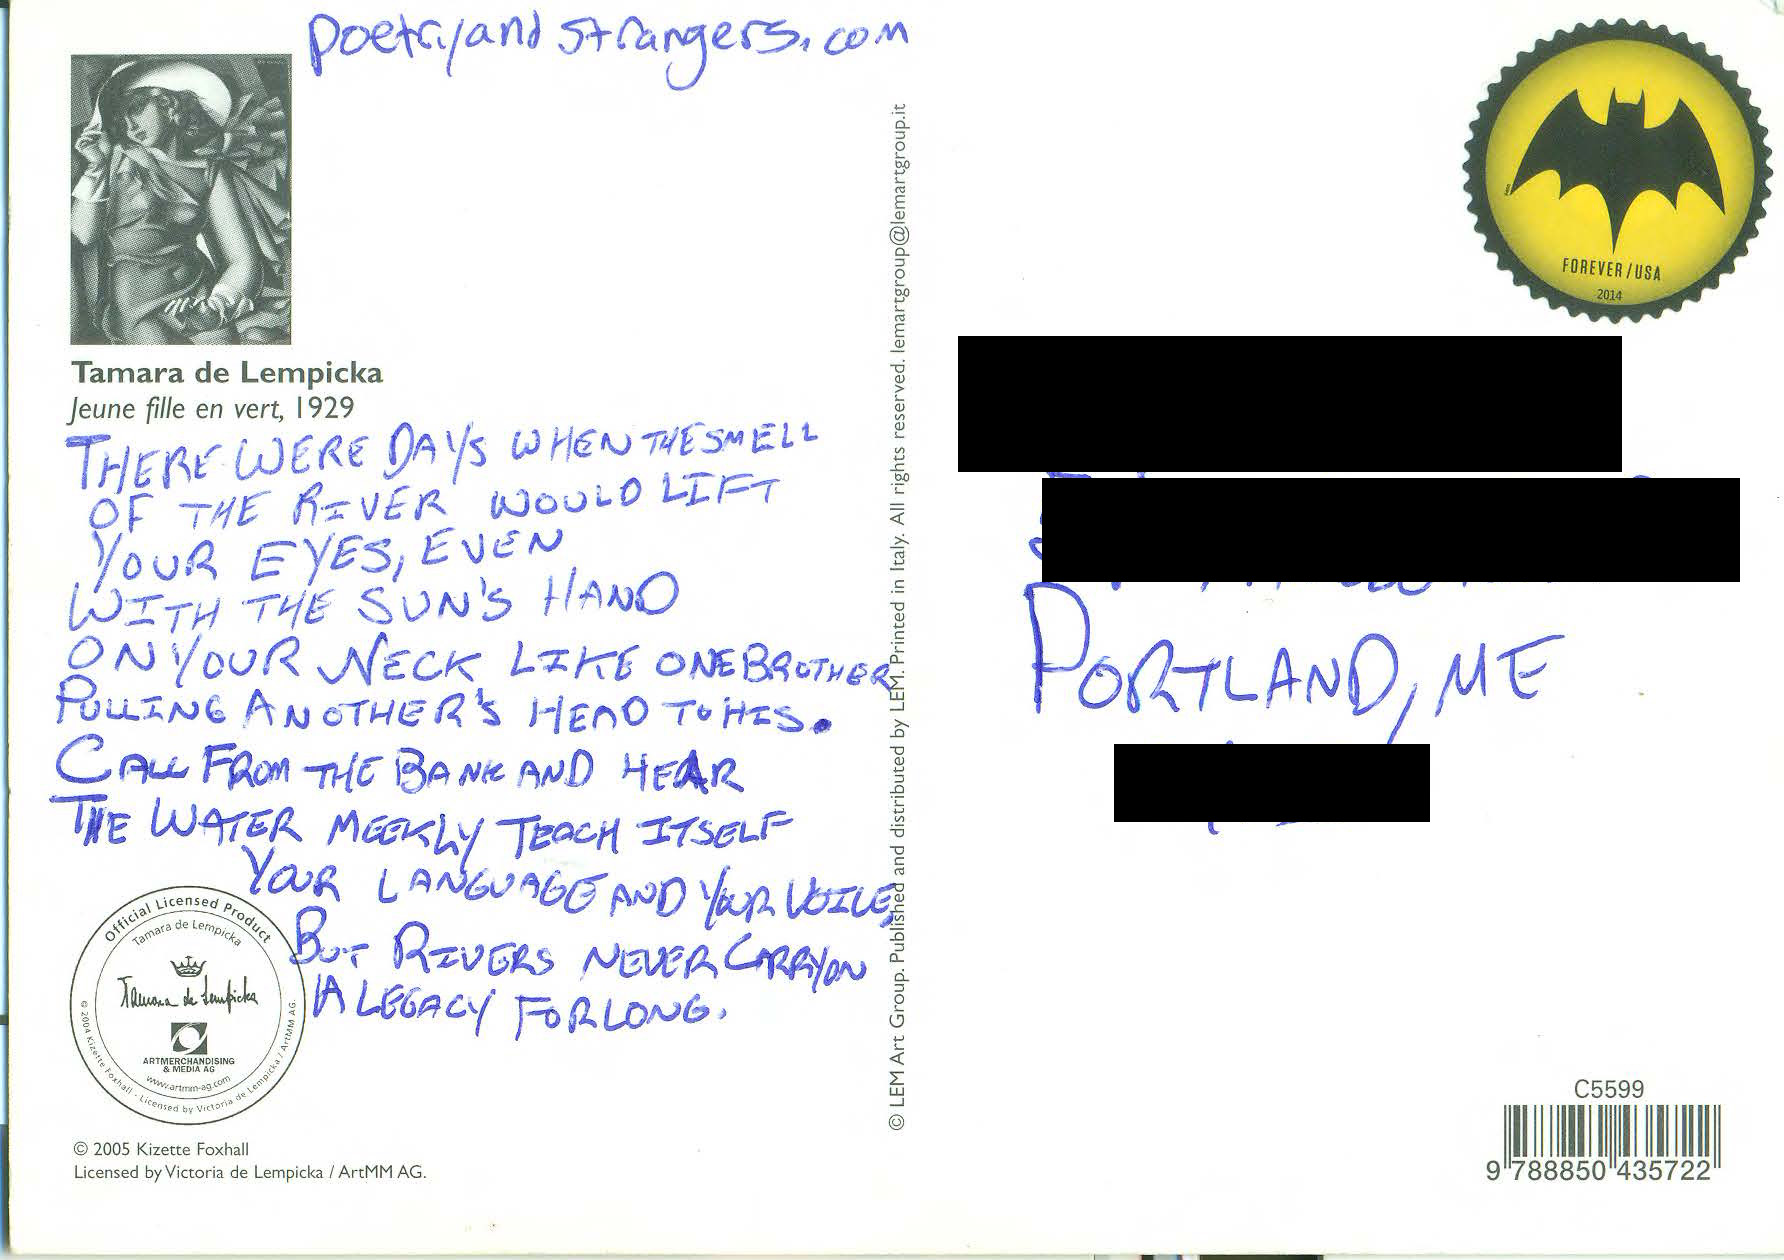 poetryandstrangers.com
Tamara de Lempicka
Jeune fille en vert, 1929
THERE WERE DAYS WHEN THE SMELL
OF THE RIVER WOULD LIFT
YOUR EYES, EVEN
WITH THE SUN'S HAND
ON YOUR NECK LIKE ONE BROTHER
PULLING ANOTHER'S HEAD TO HIS.
CALL FROM THE BANK AND HEAR
THE WATER MEEKLY TEACH ITSELF
YOUR LANGUAGE AND YOUR VOICE,
BUT RIVERS NEVER CARRY ON
A LEGACY FOR LONG.
Official Licensed Product
Tamara de Lempicka
Tamara de Lempicka
ARTMERCHANDISING
& MEDIA AG
www.artmm-ag.com
© 2004 Kizette Foxhall - Licensed by Victoria de Lempicka / ArtMM AG.
© 2005 Kizette Foxhall
Licensed by Victoria de Lempicka / ArtMM AG.
© LEM Art Group. Published and distributed by LEM. Printed in Italy. All rights reserved. lemartgroup@lemartgroup.it
FOREVER/USA
2014
PORTLAND, ME
C5599
9 788850 435722